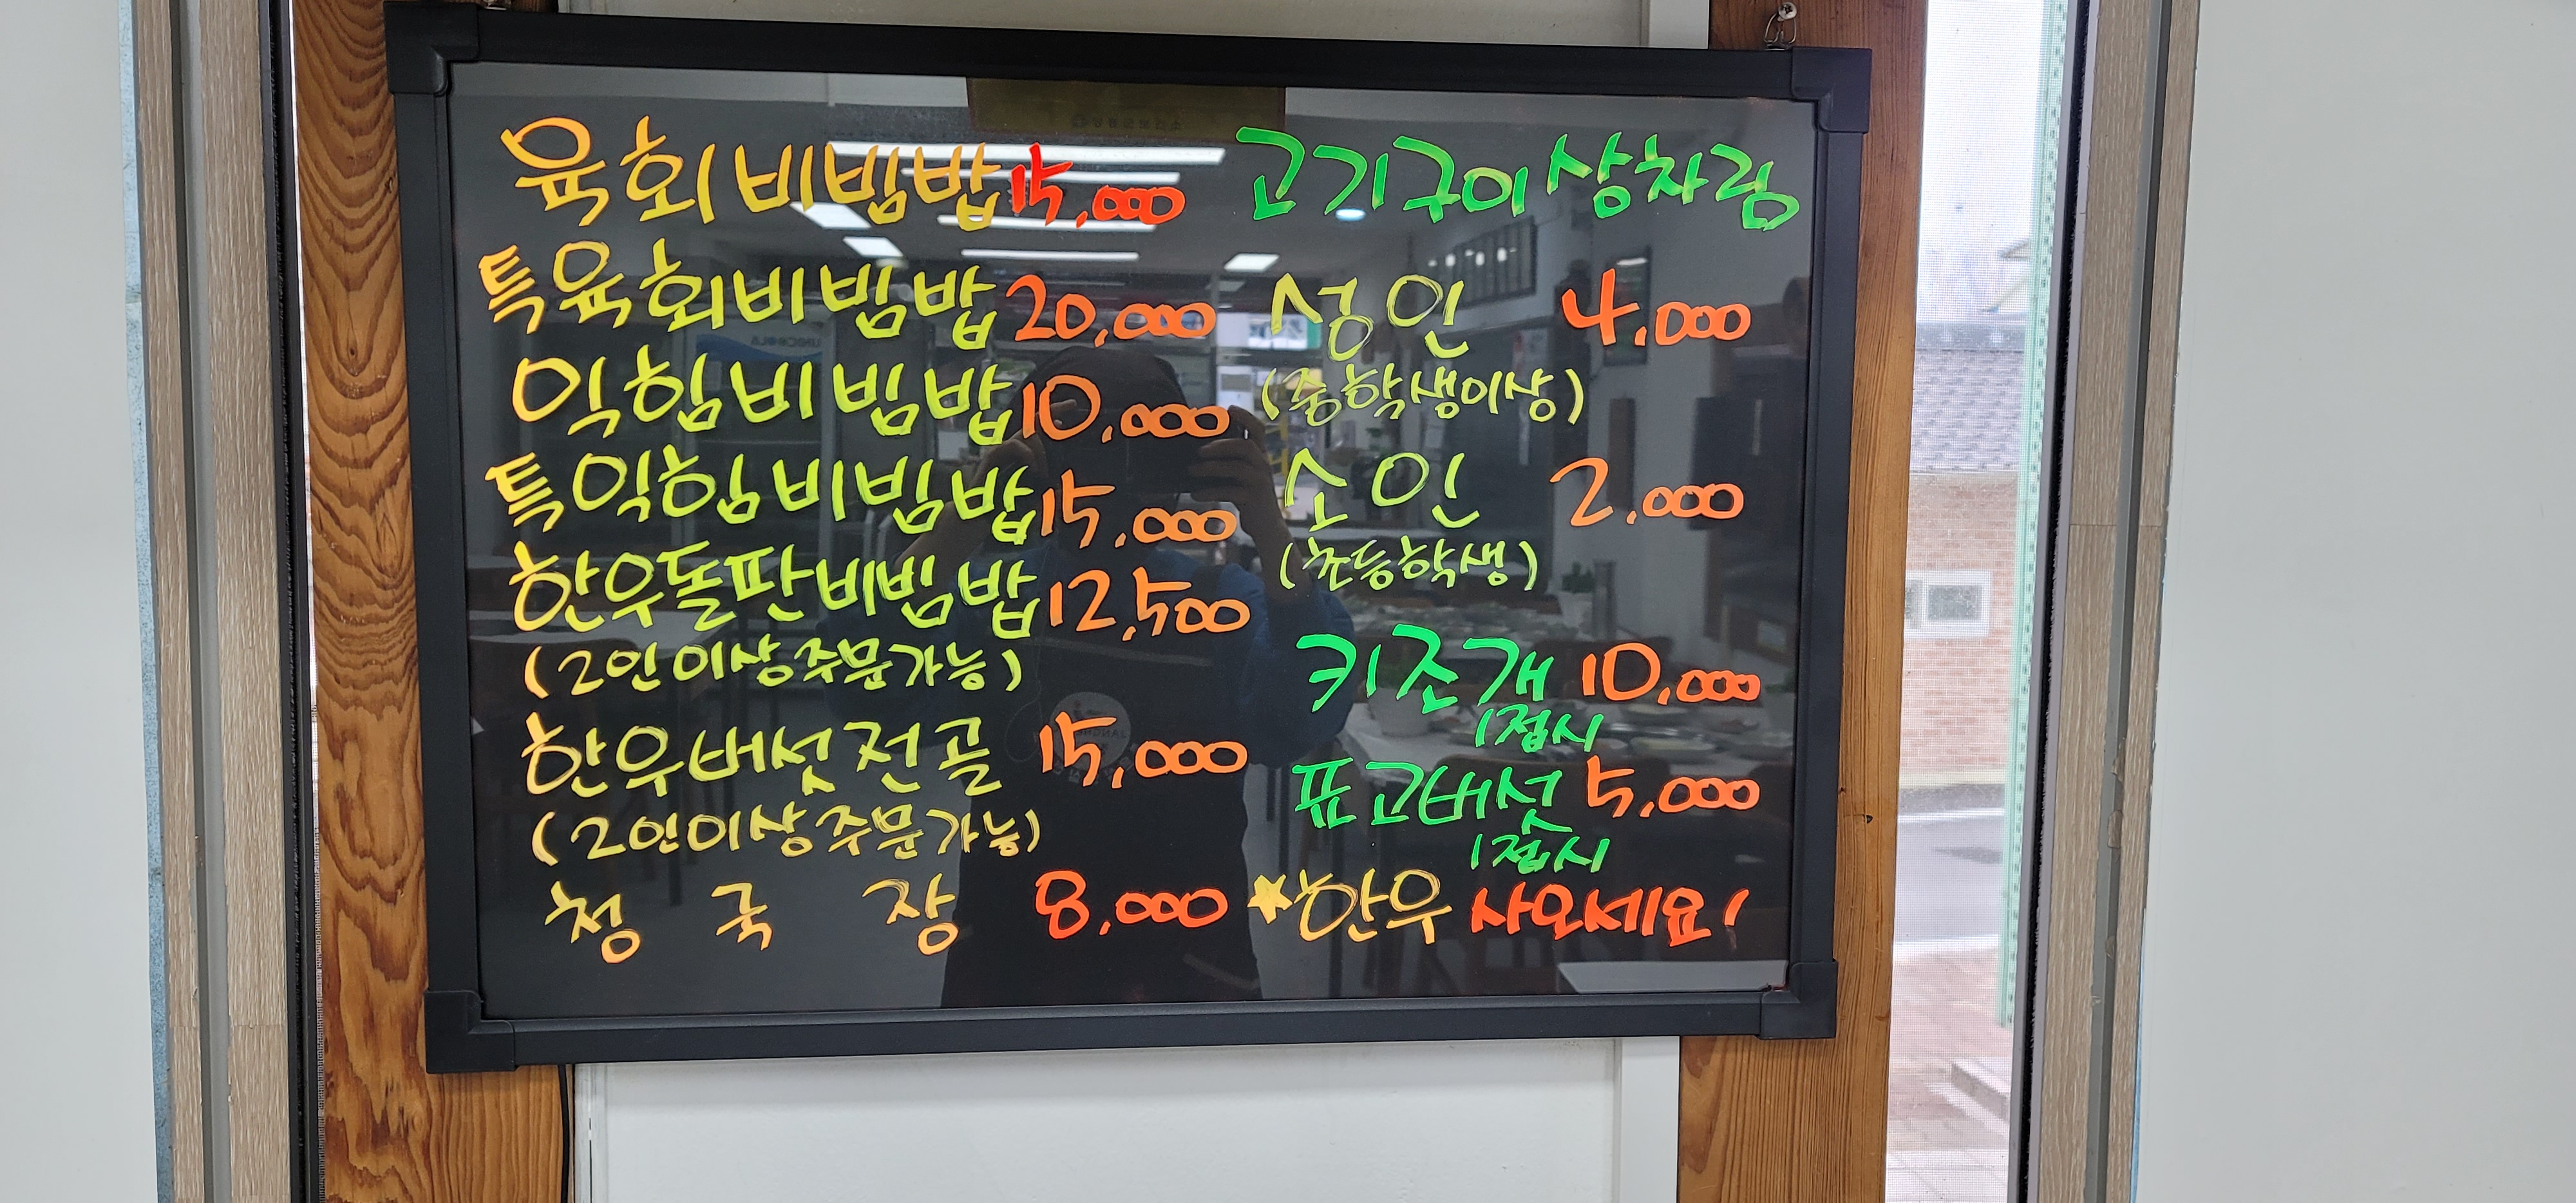 육회비빔밥 15,000
특육회비빔밥 20,000
익힘비빔밥 10,000
특익힘비빔밥 15,000
한우돌판비빔밥 12,500
(2인이상주문가능)
한우버섯전골 15,000
(2인이상주문가능)
청국장 8,000
고기구이상차림
성인 4,000
(중학생이상)
소인 2,000
(초등학생)
키조개 10,000
1접시
표고버섯 5,000
1접시
★한우 사오세요!